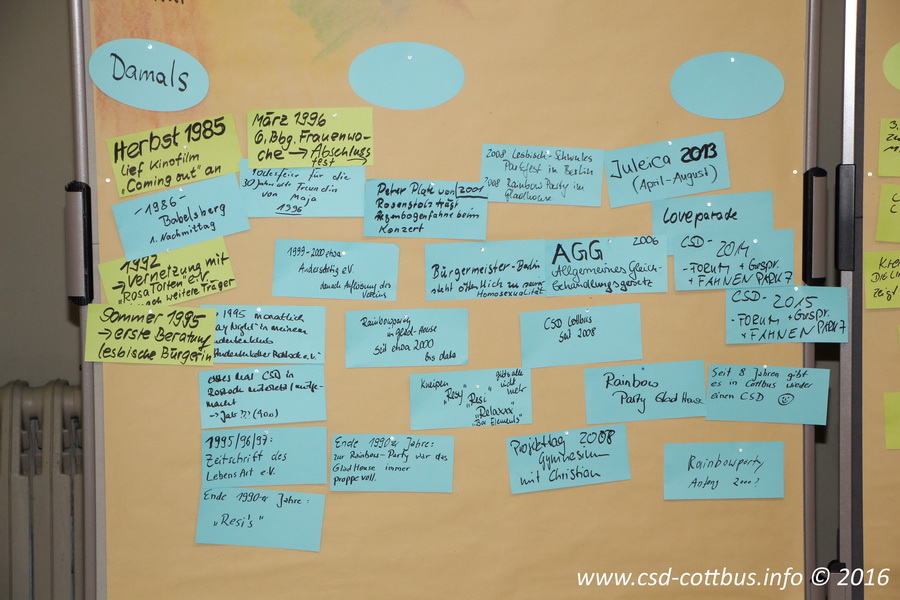 Damals
Herbst 1985
lief Kinofilm
„Coming out" an
März 1996
6. Bbg. Frauenwo-
che → Abschluss
fest
-1986-
Babelsberg
1. Nachmittag
für die
30 Jahre alte Freundin
von Maja
1996
Peter Plate von 2001
Rosenstolz trägt
Regenbogenfahne beim
Konzert
2008 Lesbisch-Schwules
Parkfest in Berlin
2008 Rainbow Party im
Gladhouse
Juleica 2013
(April-August)
Loveparade
1992
→Vernetzung mit
"Rosa Torten" e.V.
noch weitere Träger
1999-2000 etwa
Anderstatig e.V.
danach Auflösung des
Vereins
Bürgermeister-Berlin
steht öffentlich zu seiner
Homosexualität
AGG 2006
Allgemeines Gleich-
behandlungsgesetz
CSD- 2014
-FORUM + Gospr.
+ FAHNEN
CSD- 2015
-FORUM + Gospr.
+ FAHNEN
Sommer 1995
→erste Beratung
lesbische Bürgerin
1995 monatlich
in meinem
Rainbow
in Glad-House
seit etwa 2000
bis dato
CSD Cottbus
seit 2008
erstes mal CSD in
Rostock
→ Jahr ??? (90er)
Kneipen gibts alle
"Rosy" "Resi" nicht
mehr
"Relaxxx"
Rainbow
Party Glad House
Seit 8 Jahren gibt
es in Cottbus wieder
einen CSD ☺
1995/96/97:
Zeitschrift des
LebensArt e.V.
Ende 1990er Jahre:
zur Rainbow-Party war das
GladHouse immer
proppevoll.
Projekttag 2008
Gymnasium
mit Christian
Rainbowparty
Anfang 2000?
Ende 1990er Jahre:
„Resi's"
www.csd-cottbus.info © 2016